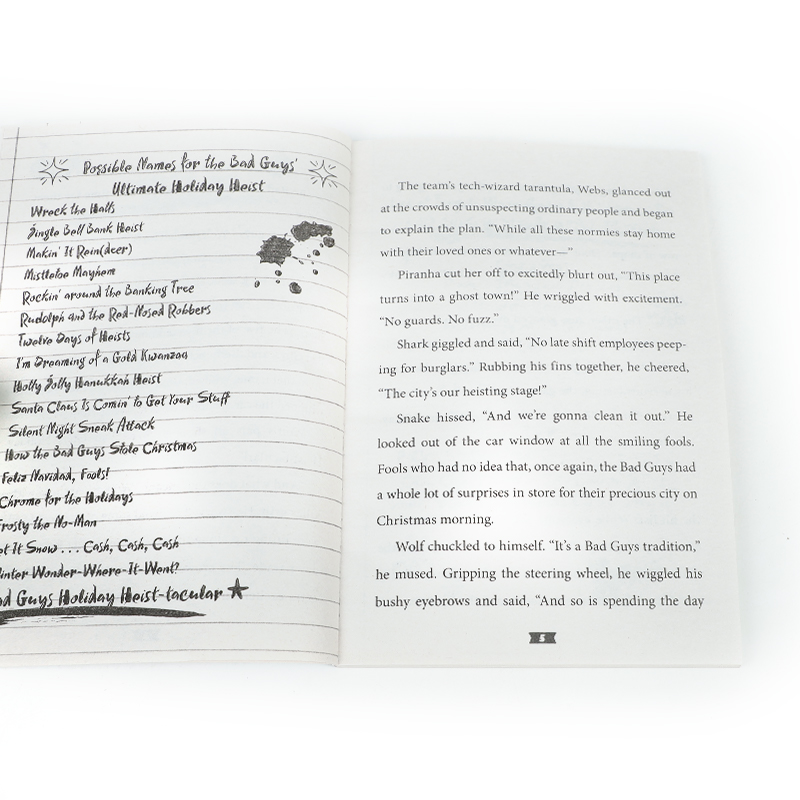 Possible Names for the Bad Guys'
Ultimate Holiday Heist
Wreck the Halls
Jingle Bell Bank Heist
Makin' It Rein(deer)
Mistletoe Mayhem
Rockin' around the Banking Tree
Rudolph and the Red-Nosed Robbers
Twelve Days of Heists
I'm Dreaming of a Gold Kwanzaa
Holly Jolly Hanukkah Heist
Santa Claus Is Comin' to Get Your Stuff
Silent Night Sneak Attack
How the Bad Guys Stole Christmas
Feliz Navidad, Fools!
Chrome for the Holidays
rosty the No-Man
et It Snow . . . Cash, Cash, Cash
inter Wonder-Where-It-Went?
ad Guys Holiday Heist-tacular
The team's tech-wizard tarantula, Webs, glanced out
at the crowds of unsuspecting ordinary people and began
to explain the plan. "While all these normies stay home
with their loved ones or whatever—"
Piranha cut her off to excitedly blurt out, "This place
turns into a ghost town!" He wriggled with excitement.
"No guards. No fuzz."
Shark giggled and said, "No late shift employees peep-
ing for burglars." Rubbing his fins together, he cheered,
"The city's our heisting stage!"
Snake hissed, "And we're gonna clean it out." He
looked out of the car window at all the smiling fools.
Fools who had no idea that, once again, the Bad Guys had
a whole lot of surprises in store for their precious city on
Christmas morning.
Wolf chuckled to himself. "It's a Bad Guys tradition,"
he mused. Gripping the steering wheel, he wiggled his
bushy eyebrows and said, "And so is spending the day
5